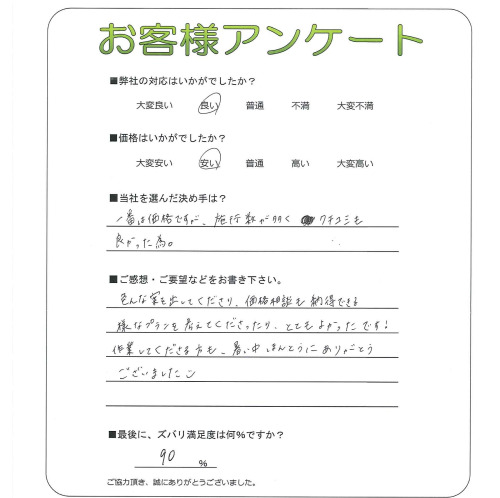 お客様アンケート
■弊社の対応はいかがでしたか?
大変良い 良い 普通 不満 大変不満
■価格はいかがでしたか?
大変安い 安い 普通 高い 大変高い
■当社を選んだ決め手は?
一番は価格ですが、施行数が多く クチコミも
良かった為。
■ご感想・ご要望などをお書き下さい。
色んな案を出してくださり、価格相談も納得できる
様なプランを考えてくださったり、とてもよかったです!
作業してくださる方も、暑い中ほんとうにありがとう
ございました
■最後に、ズバリ満足度は何%ですか?
90 %
ご協力頂き、誠にありがとうございました。